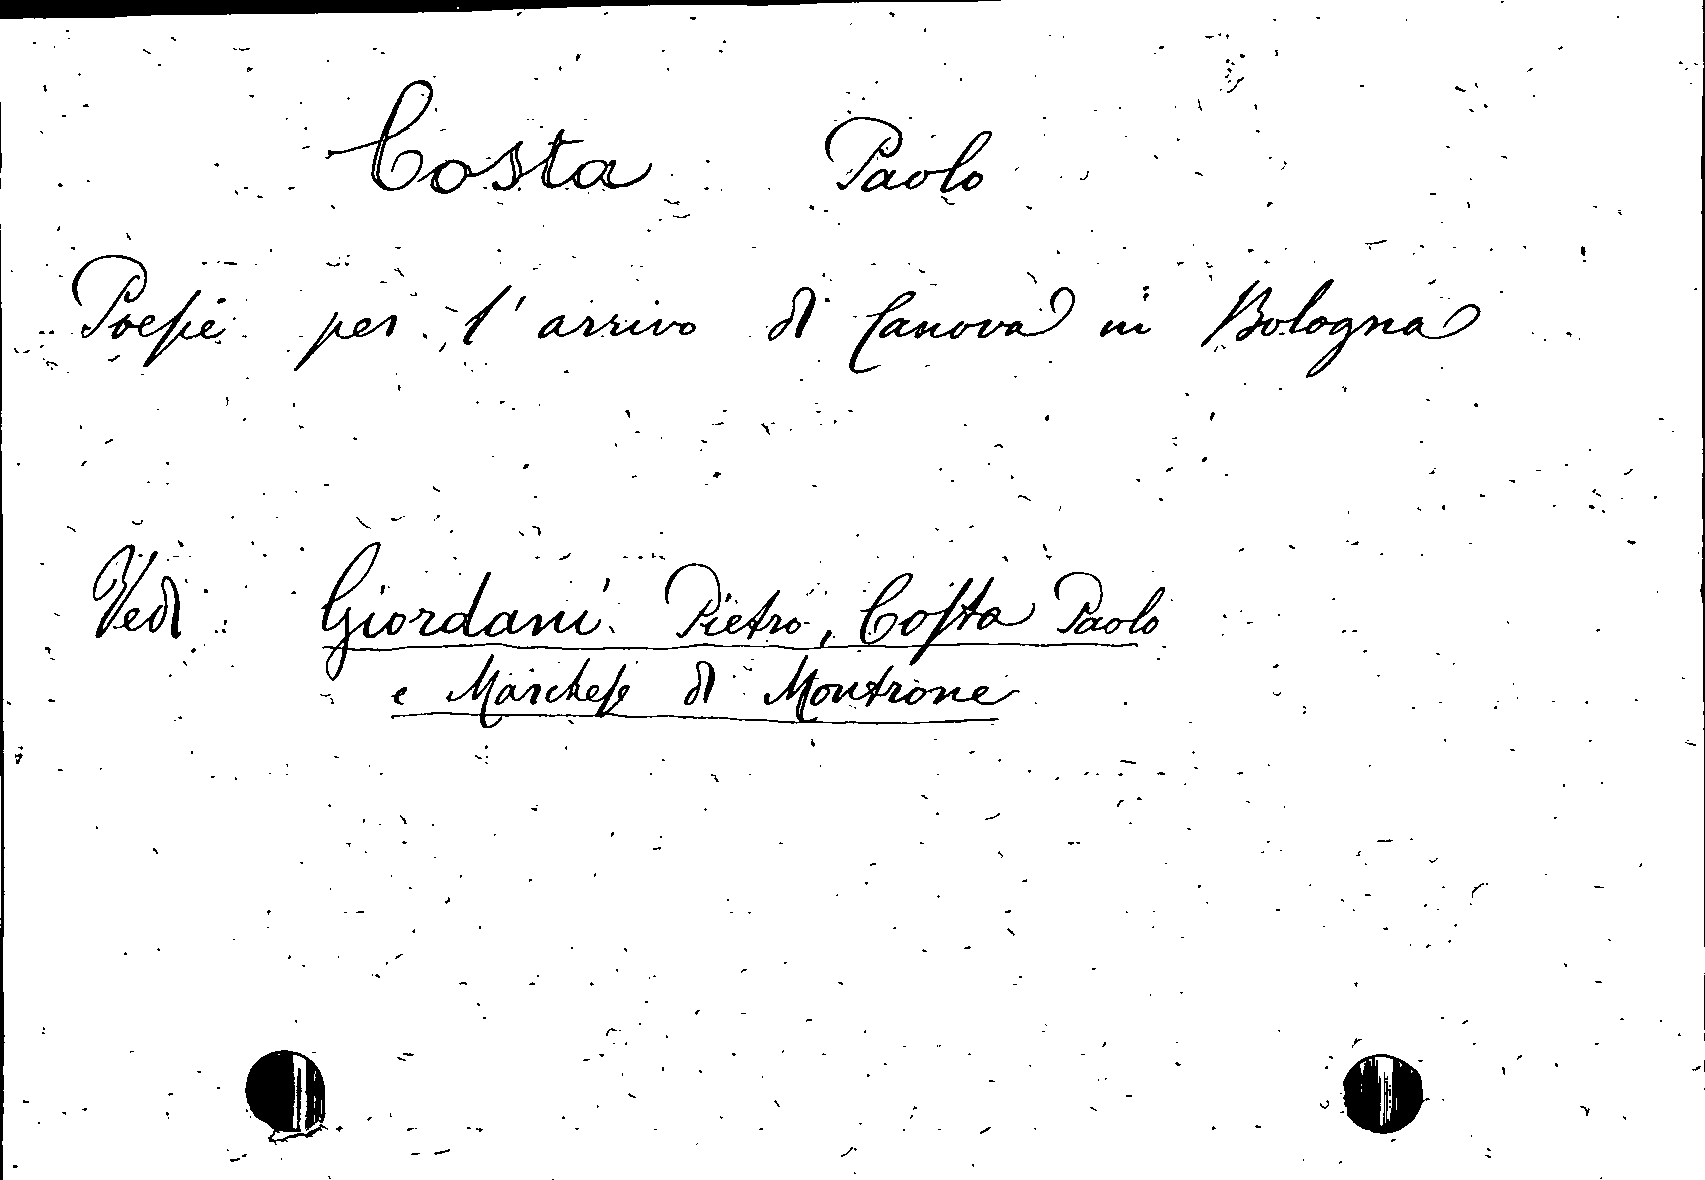 Costa Paolo
Poesie per l'arrivo di Canova in Bologna
Vedi Giordani Pietro, Costa Paolo
e Marchese di Montrone